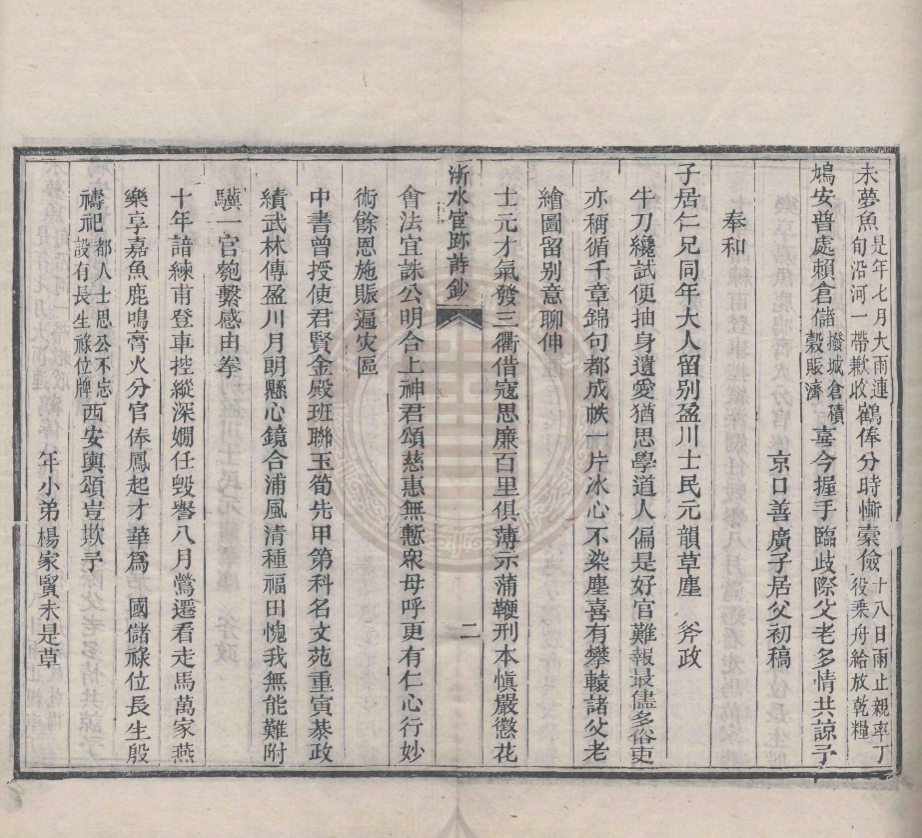 未夢魚是年七月大雨連旬沿河一帶歉收鶴俸分時慚橐儉十八日雨止親率丁役乘舟給放乾糧
鴆安普處賴倉儲撥城倉積穀賑濟喜今握手臨歧際父老多情共諒予
京口善廣子居父初稿
奉和
子居仁兄同年大人留别盈川士民元韻草塵 斧政
牛刀纔試便抽身遺愛猶思學道人偏是好官難報最儘多俗吏
亦稱循千章錦句都成帙一片冰心不染塵喜有攀轅諸父老
繪圖留别意聊伸
士元才氣發三衢借寇思廉百里俱薄示蒲鞭刑本愼嚴懲花
浙水宦跡詩鈔
二
會法宜誅公明合上神君頌慈惠無慙衆母呼更有仁心行妙
術餘恩施賑遍灾區
中書曾授使君賢金殿班聯玉筍先甲第科名文苑重寅恭政
績武林傳盈川月朗懸心鏡合浦風清種福田愧我無能難附
驥一官匏繫感由拳
十年諳練甫登車控縱深嫻任毀譽八月鶯遷看走馬萬家燕
樂享嘉魚鹿鳴宵火分官俸鳳起才華爲 國儲祿位長生殷
禱祀都人士思公不忘設有長生祿位牌西安輿頌豈欺予
年小弟楊家賢未是草